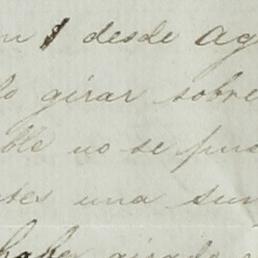 desde ag
girar sobre
ble no se pu
una su
haber girado